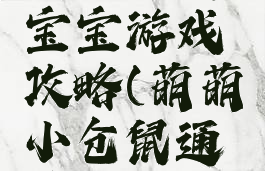 宝宝游戏
攻略(萌萌
小仓鼠通